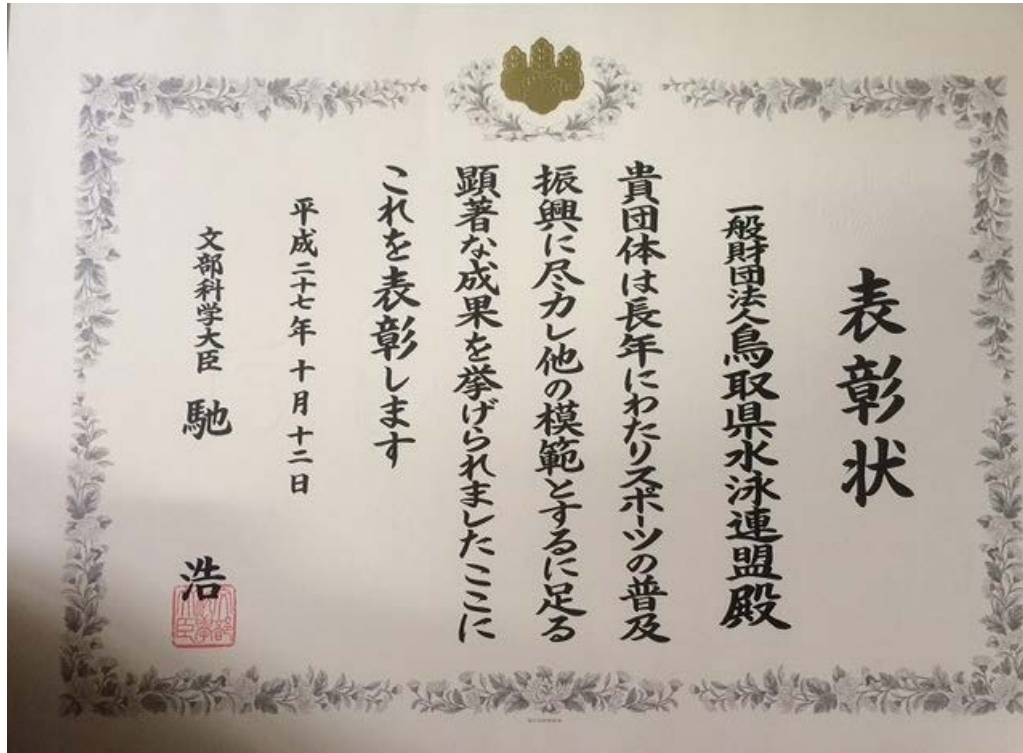 表彰状
一般財団法人鳥取県水泳連盟殿
貴団体は長年にわたりスポーツの普及
振興に尽力し他の模範とするに足る
顕著な成果を挙げられましたここに
これを表彰します
平成二十七年十月十二日
文部科学大臣 馳 浩